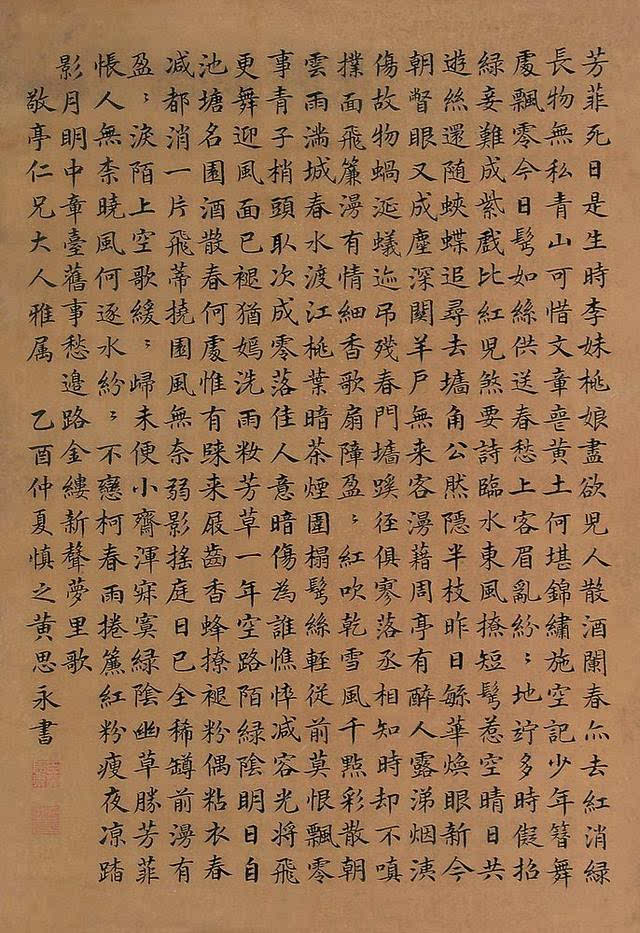 芳菲死日是生時李妹桃娘盡欲兒人散酒闌春亦去紅消綠
長物無私青山可惜文章喪黃土何堪錦繡施空記少年簪舞
處飄零今日鬢如絲供送春愁上客眉亂紛〻地竚多時假招
綠妾難成紫戲比紅兒煞要詩臨水東風撩短鬢惹空晴日共
遊絲還随蛺蝶追尋去墻角公然隱半枝昨日緐華煥眼新今
朝瞥眼又成塵深關羊戶無来客漫藉周亭有醉人露涕烟洟
傷故物蝸涎蟻迹弔殘春門墻蹊徑俱寥落丞相知時却不嗔
撲面飛簾漫有情細香歌扇障盈〻紅吹乾雪風千點彩散朝
雲雨滿城春水渡江桃葉暗茶煙圍榻鬢絲輕従前莫恨飄零
事青子梢頭取次成零落佳人意暗傷為誰憔悴減容光將飛
更舞迎風面已褪猶嫣洗雨妝芳草一年空路陌綠陰明日自
池塘名園酒散春何處惟有踈来屐齒香蜂撩褪粉偶粘衣春
减都消一片飛蒂撓園風無奈弱影搖庭日已全稀罇前漫有
盈〻淚陌上空歌緩〻歸未便小齋渾寂寞綠陰幽草勝芳菲
悵人無柰曉風何逐水紛〻不戀柯春雨捲簾紅粉瘦夜凉踏
影月明中章臺舊事愁邊路金縷新聲夢里歌
敬亭仁兄大人雅属 乙酉仲夏慎之黃思永書